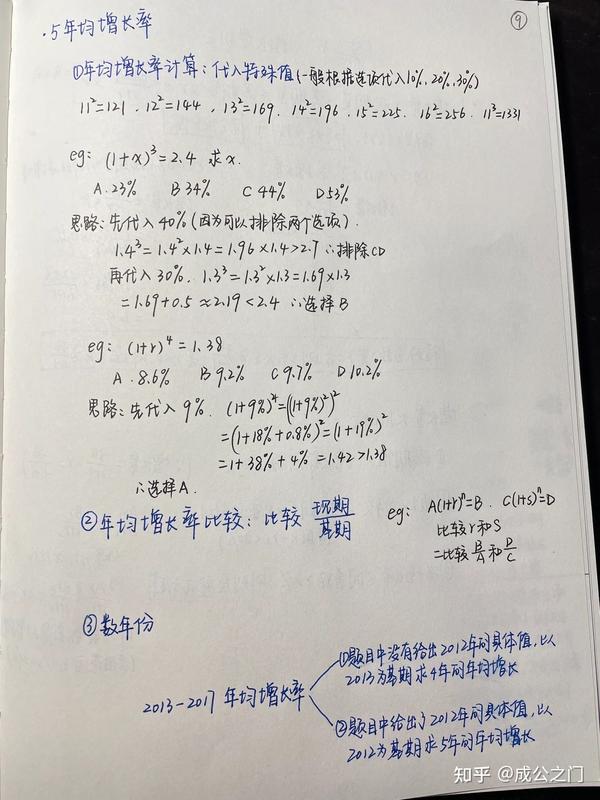 ⑨
·5年均增长率
①年均增长率计算:代入特殊值(一般根据选项代入10%,20%,30%)
11²=121,12²=144,13²=169.14²=196.15²=225.16²=256.11³=1331
eg:(1+x)³=2.4 求x.
A.23% B34% C44% D53%
思路:先代入40%(因为可以排除两个选项).
1.4³=1.4²×1.4=1.96×1.4>2.7 ∴排除CD
再代入30%.1.3³=1.3²×1.3=1.69×1.3
=1.69+0.5≈2.19<2.4 ∴选择B
eg:(1+r)⁴=1.38
A.8.6% B9.2% C9.7% D10.2%
思路:先代入9%.(1+9%)⁴=((1+9%)²)²
=(1+18%+0.8%)²=(1+19%)²
=1+38%+4%=1.42>1.38
∴选择A.
②年均增长率比较:比较 现期/基期
eg:A(1+r)ⁿ=B.C(1+s)ⁿ=D
比较r和S
=比较B/A和D/C
③数年份
2013-2017年均增长率
①题目中没有给出2012年的具体值,以
2013为基期求4年的年均增长
②题目中给出了2012年的具体值,以
2012为基期求5年的年均增长
知乎 @成公之门